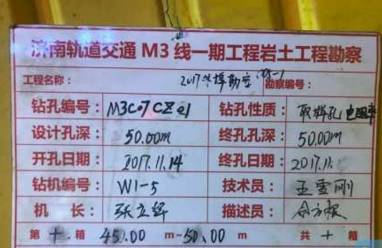 济南轨道交通 M3 线一期工程岩土工程勘察
工程名称: 勘察编号:
钻孔编号: M3C07CZ01 钻孔性质: 取样孔
设计孔深: 50.00m 终孔孔深: 50.00m
开孔日期: 2017.11.14 终孔日期: 2017.11.
钻机编号: W1-5 技术员:
机 长: 描述员:
第 十 箱 45.00 m-50.00 m 共 十 箱